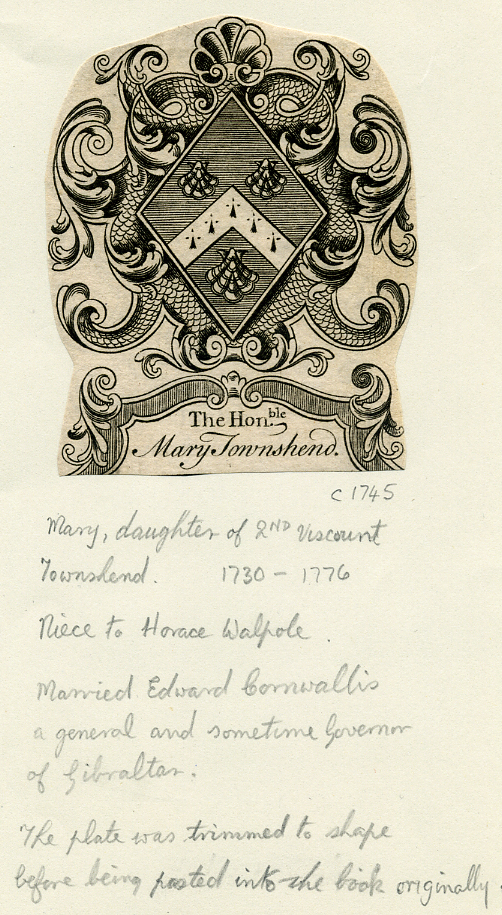 The Hon.ble
Mary Townshend.
c 1745.
Mary, daughter of 2ND Viscount
Townshend. 1730 - 1776
Niece to Horace Walpole.
Married Edward Cornwallis
a general and sometime Governor
of Gibraltar.
The plate was trimmed to shape
before being pasted into the book originally.